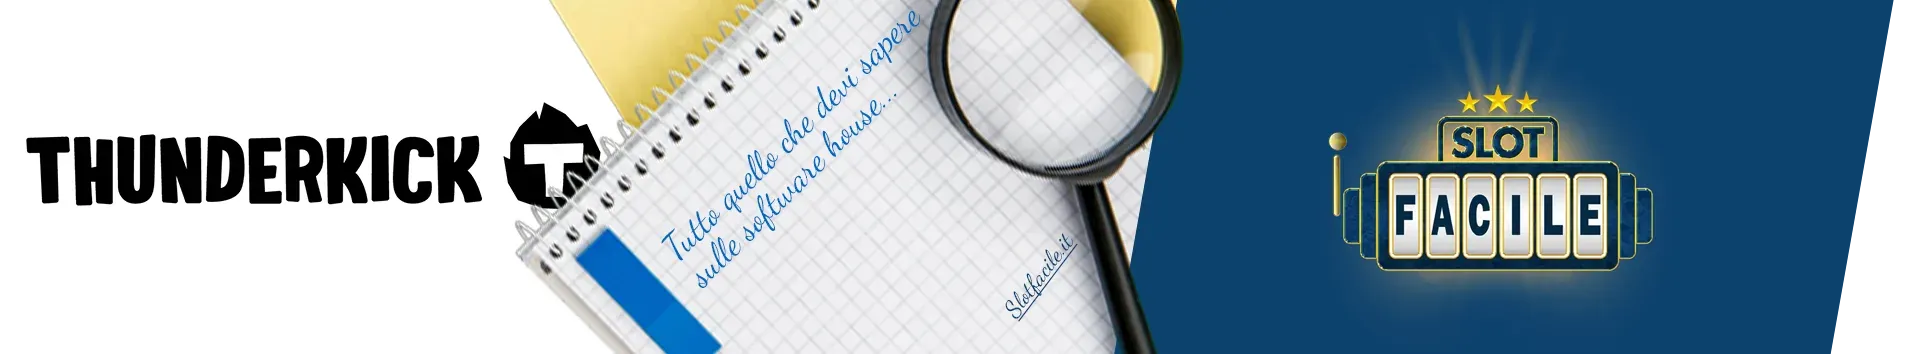 THUNDERKICK
T
Tutto quello che devi sapere
sulle software house...
Slotfacile.it
SLOT
FACILE